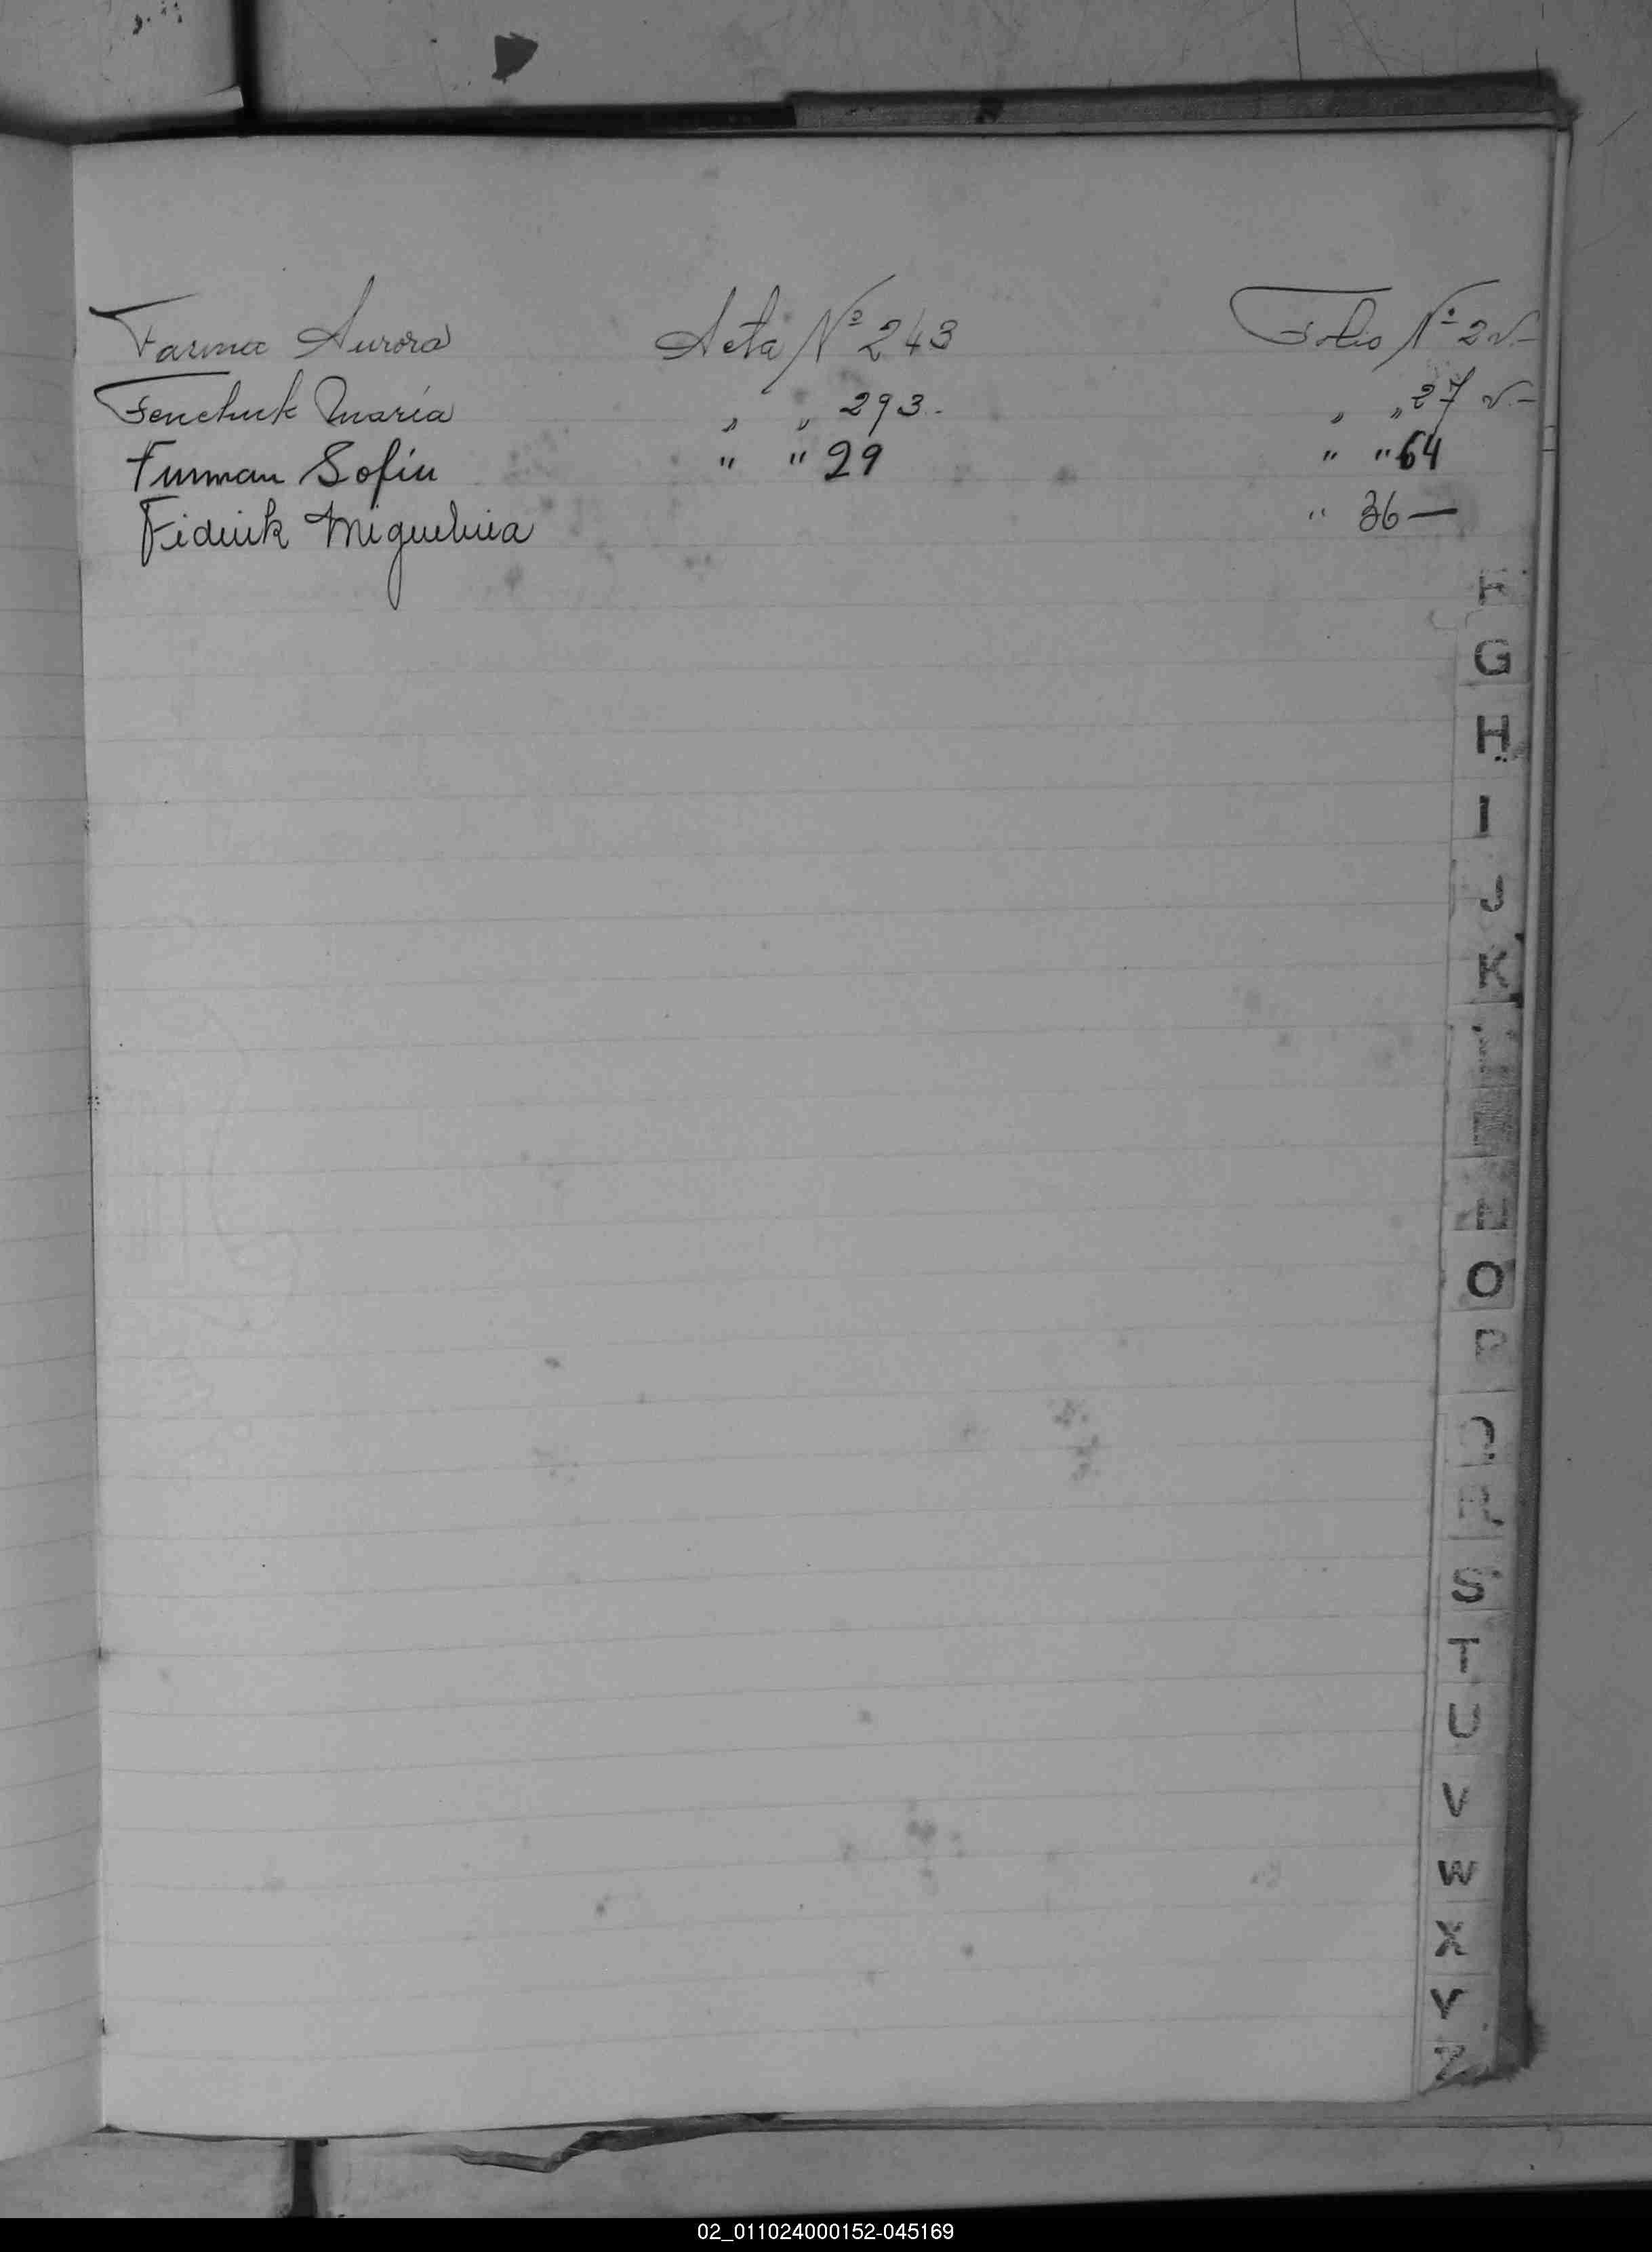 Farina Aurora Acta Nº 243 Folio Nº 2 v.-
Fenchuk María " " 293.- " " 27 v.-
Furman Sofia " " 29 " " 64
Miguelina " 36 —
F
G
H
I
J
K
O
P
Q
R
S
T
U
V
W
X
Y
Z
02_011024000152-045169